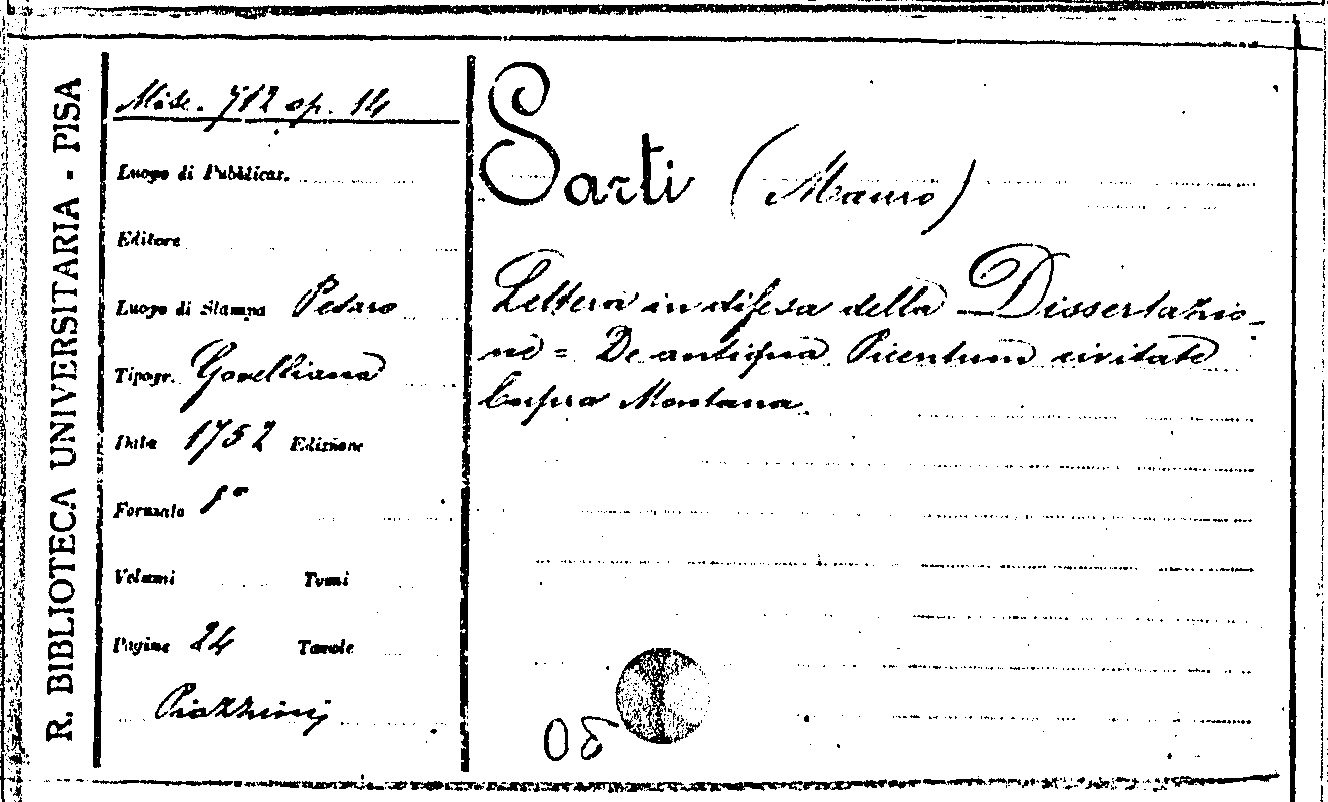 R. BIBLIOTECA UNIVERSITARIA - PISA
Misc. 712 op. 14
Luogo di Pubblicaz.
Editore
Luogo di Stampa Pesaro
Tipogr. Gavelliana
Data 1752 Edizione
Formato 8°
Volumi Tomi
Pagine 24 Tavole
Piazzini
Sarti (Mauro)
Lettera in difesa della Dissertazio-
ne = De antiqua Picentum civitate
Cupra Montana.